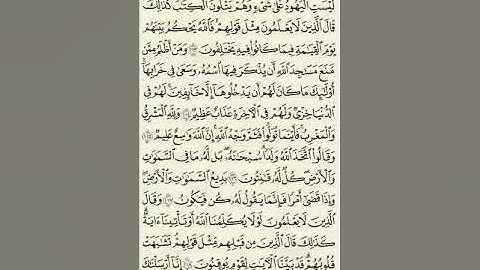 لَيْسَتِ الْيَهُودُ عَلَىٰ شَىْءٍ وَهُمْ يَتْلُونَ الْكِتَٰبَ كَذَٰلِكَ
قَالَ الَّذِينَ لَا يَعْلَمُونَ مِثْلَ قَوْلِهِمْ فَاللَّهُ يَحْكُمُ بَيْنَهُمْ
يَوْمَ الْقِيَٰمَةِ فِيمَا كَانُوا فِيهِ يَخْتَلِفُونَ ١١٣ وَمَنْ أَظْلَمُ مِمَّن
مَّنَعَ مَسَٰجِدَ اللَّهِ أَن يُذْكَرَ فِيهَا اسْمُهُ وَسَعَىٰ فِى خَرَابِهَا
أُولَٰئِكَ مَا كَانَ لَهُمْ أَن يَدْخُلُوهَا إِلَّا خَائِفِينَ لَهُمْ فِى
الدُّنْيَا خِزْىٌ وَلَهُمْ فِى الْءَاخِرَةِ عَذَابٌ عَظِيمٌ ١١٤ وَلِلَّهِ الْمَشْرِقُ
وَالْمَغْرِبُ فَأَيْنَمَا تُوَلُّوا فَثَمَّ وَجْهُ اللَّهِ إِنَّ اللَّهَ وَٰسِعٌ عَلِيمٌ ١١٥
وَقَالُوا اتَّخَذَ اللَّهُ وَلَدًا سُبْحَٰنَهُ بَل لَّهُ مَا فِى السَّمَٰوَٰتِ
وَالْأَرْضِ كُلٌّ لَّهُ قَٰنِتُونَ ١١٦ بَدِيعُ السَّمَٰوَٰتِ وَالْأَرْضِ
وَإِذَا قَضَىٰ أَمْرًا فَإِنَّمَا يَقُولُ لَهُ كُن فَيَكُونُ ١١٧ وَقَالَ
الَّذِينَ لَا يَعْلَمُونَ لَوْلَا يُكَلِّمُنَا اللَّهُ أَوْ تَأْتِينَا ءَايَةٌ
كَذَٰلِكَ قَالَ الَّذِينَ مِن قَبْلِهِم مِّثْلَ قَوْلِهِمْ تَشَٰبَهَتْ
قُلُوبُهُمْ قَدْ بَيَّنَّا الْءَايَٰتِ لِقَوْمٍ يُوقِنُونَ ١١٨ إِنَّا أَرْسَلْنَٰكَ